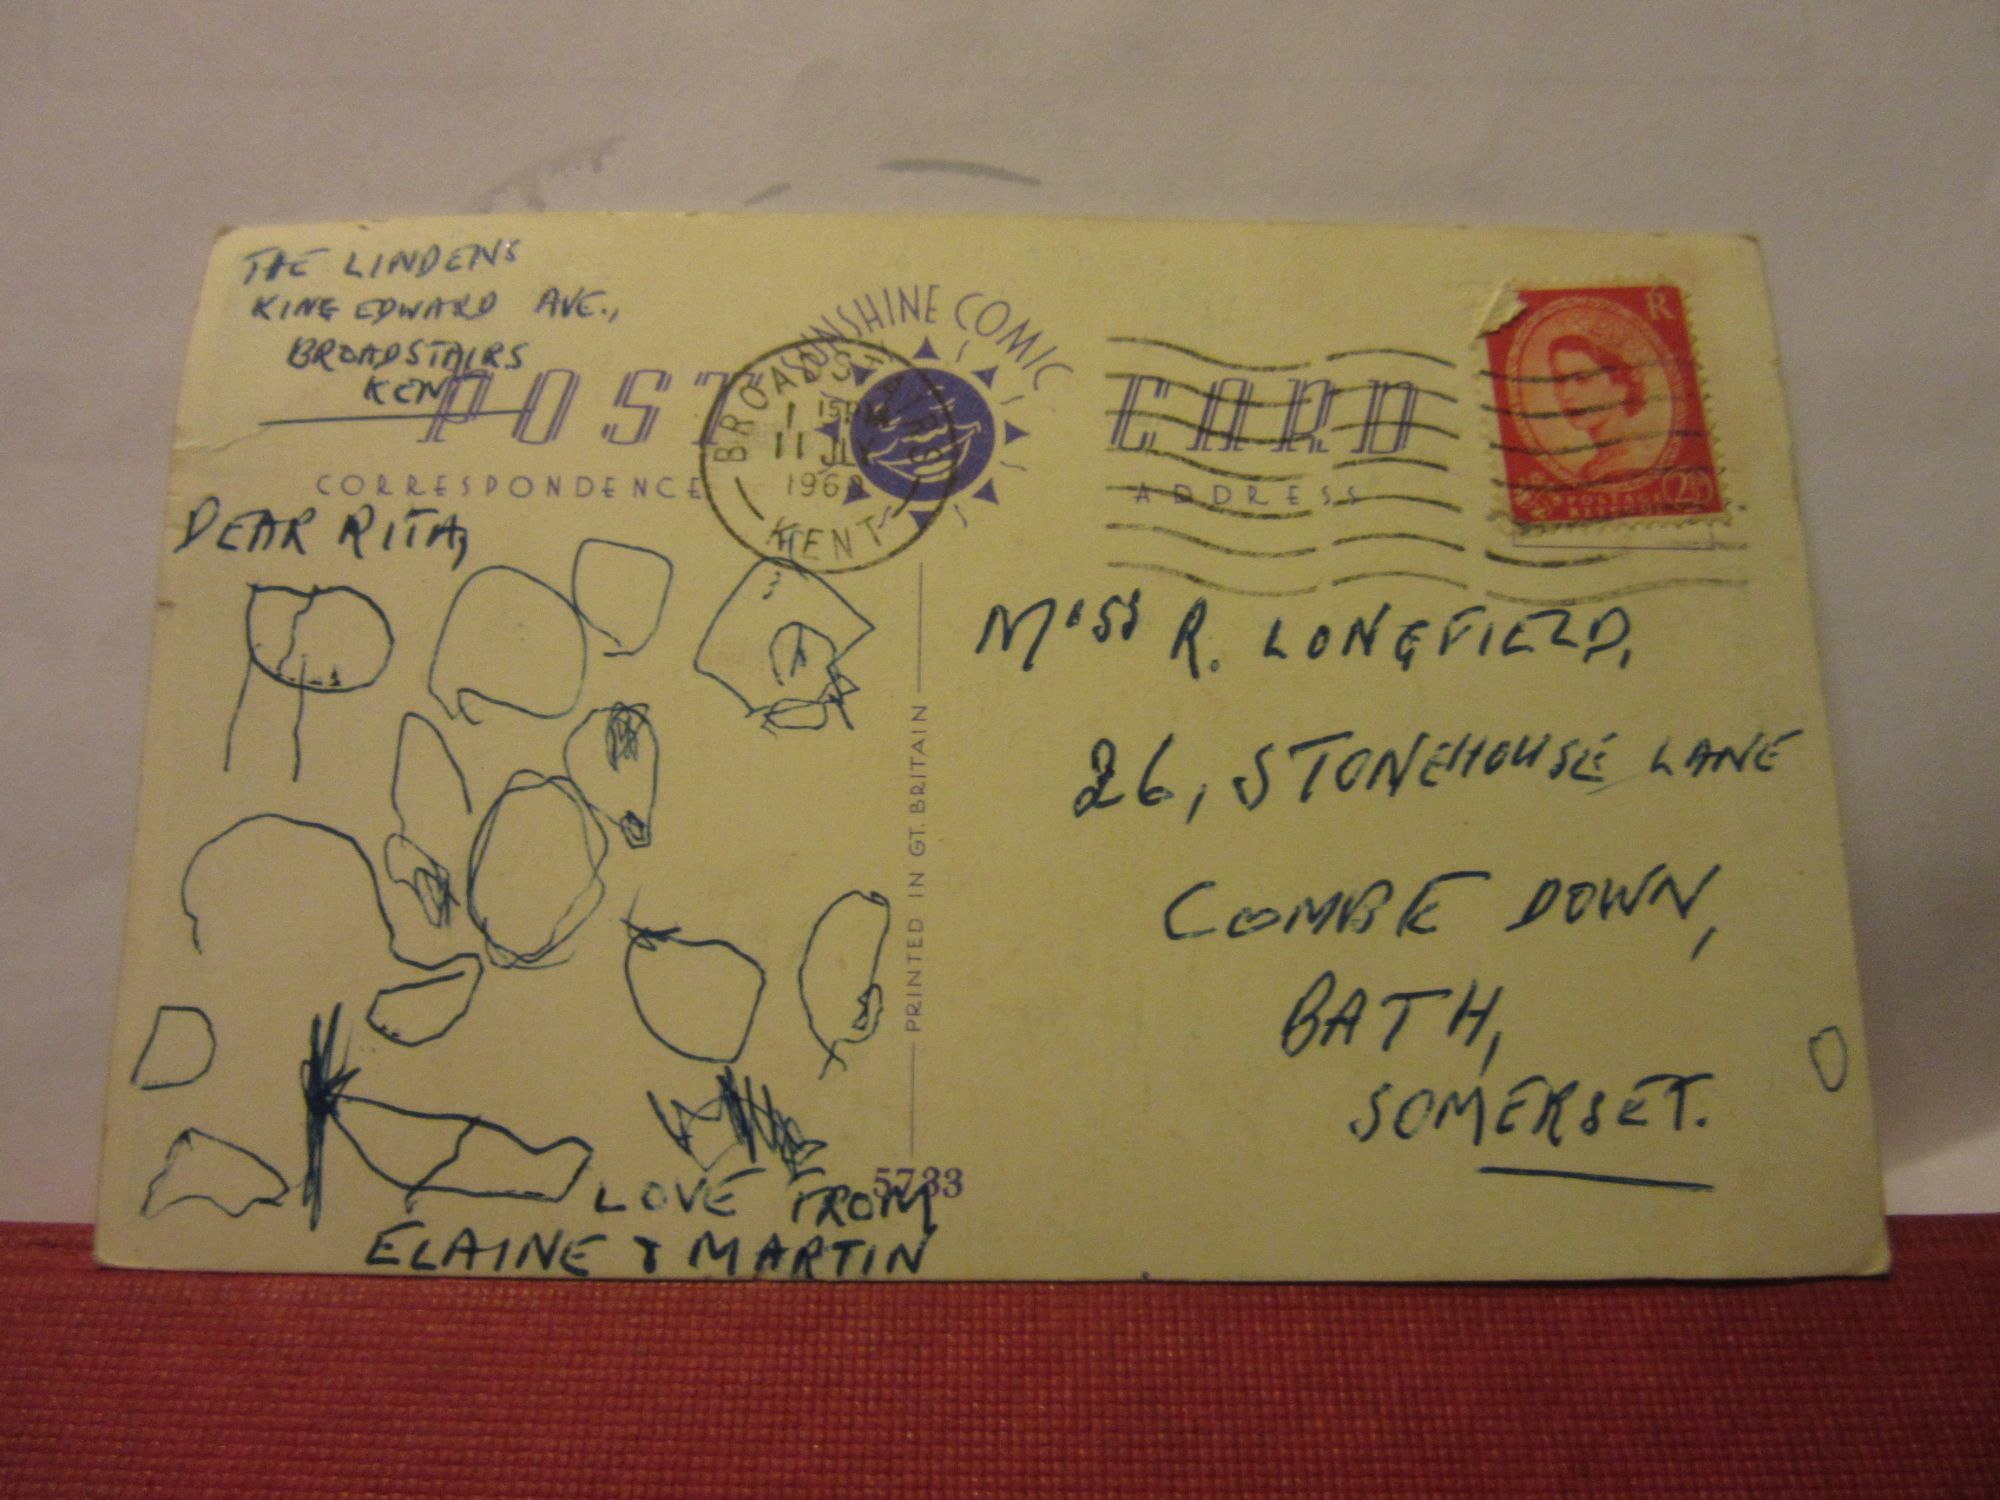 THE LINDENS
KING EDWARD AVE.,
BROADSTAIRS
KENT
SUNSHINE COMIC
POST CARD
CORRESPONDENCE
ADDRESS
BROADSTAIRS
1 15PM
11 JLY
196
KENT
R
POSTAGE
REVENUE
2½D
DEAR RITA,
MISS R. LONGFIELD,
26, STONEHOUSE LANE
COMBE DOWN,
BATH,
SOMERSET.
PRINTED IN GT. BRITAIN
5733
LOVE FROM
ELAINE & MARTIN